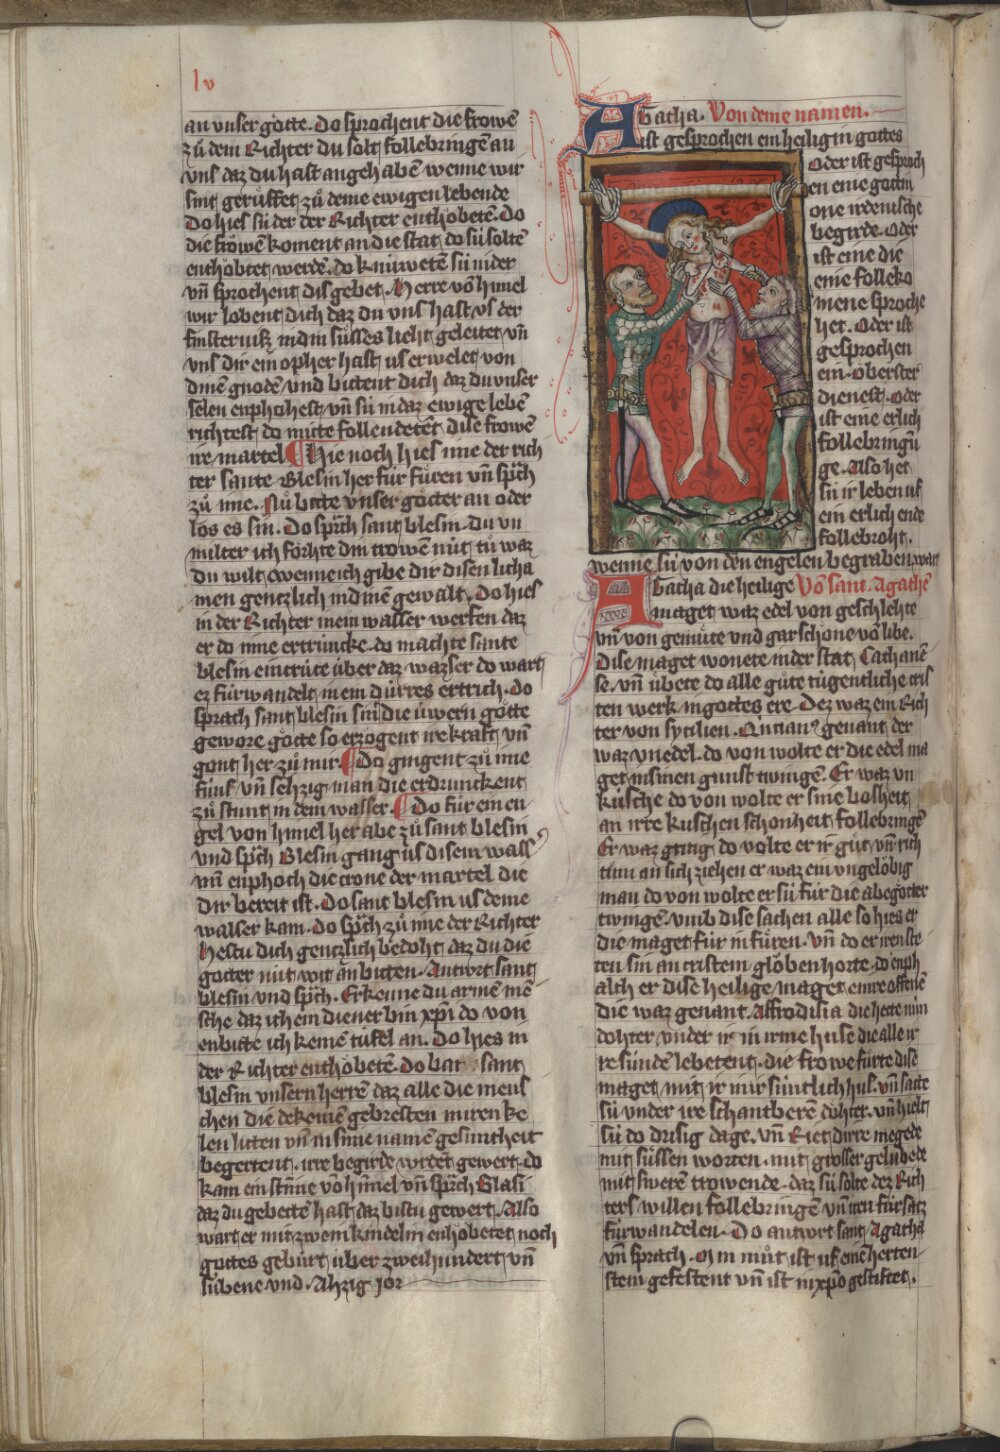 lv
an vnser götte. Do sprochent die frowē
zů dem Richter du solt follebringē an
vns daz du hast angehabē wenne wir
sint gerůffet zů deme ewigen lebende
Do hies sü der der Richter enthobetē. Do
die frowē koment an die stat do sü soltē
enthöbtet werdē. do knüwetē sü nider
vn̄ sprochent dis gebet. Herre vō himel
wir lobent dich daz du vns hast vs der
finsternis in din süsses lieht geleitet vn̄
vns dir ein opher hast us erwelet von
dinē gnodē vnd bittent dich daz du vnser
selen enphohest vn̄ sü in daz ewige lebē
richtest do mitte follendetēt dise frowē
ire martel ¶ Hie noch hies ime der rich
ter sante Blesin her für füren vn̄ sp̄ch
zů ime. Nů bitte vnser götter an oder
los es sin. Do sp̄ch sant blesin. du vn
milter ich förhte din trowen nüt tů waz
du wilt wenne ich gibe dir disen licha
men gentzlich in dinē gewalt. Do hies
in der Richter in ein wasser werfen daz
er do inne ertruncke. do machte sante
blesin ein crütze über daz wazser do wart
ez fürwandelt in ein dürres ertrich. do
sprach sant blesin sint die üwern götte
gewore götte so erzögent ire kraft vn̄
gont her zů mir. ¶ Do gingent zů ime
fünf vn̄ sehzig man die erdrunckent
zů stunt in dem wasser. ¶ Do für ein en
gel von himel her abe zů sant blesin
vnd sp̄ch Blesin gang us disem wass
vn̄ enphoch die crone der martel die
dir bereit ist. Do sant blesin us deme
wasser kam. do sp̄ch zů ime der Richter
Hestu dich gentzlich bedoht daz du die
götter nüt wit an bitten. Antwrt sant
blesin vnd sp̄ch. Erkenne du armē mē
sche daz ich ein diener bin xp̄i do von
enbitte ich keinē tüfel an. Do hies in
der Richter enthöbetē. do bat sant
blesin vnsern herrē daz alle die mens
chen die dekeinē gebresten in iren ke
len litten vn̄ in sinie namē gesuntheit
begertent. irre begirde wrdēt gewert. do
kam ein stīme vō hīmel vn̄ sp̄ch Blasi
daz du gebettē hast daz bistu gewert. Also
wart er mit zwein kindelin enhobetet noch
gottes gebürt über zweihundert vn̄
sübene vnd. Ahzig jor
Agatha. Von deme namen.
ist gesprochen ein heilig in gottes
oder ist gesproch
en eine göttin
one irdenische
begirde. oder
ist eine die
eine folleko
mene sproche
het. Oder ist
gesprochen
ein öberster
dienest. oder
ist eine erlich
follebringū
ge. Also het
sü ir leben uf
ein erlich ende
follebroht.
wenne sü von den engelen begraben wart
Agatha die heilige Vō sant. Agathē
maget waz edel von geschlehte
vn̄ von gemüte vnd gar schöne vō libe.
Dise maget wonete in der stat Cathanē
se. vn̄ übete do alle güte tügentliche cris
ten werk in gottes ere. Dez waz ein Rich
ter von sycilien. Quincianꝰ genant der
waz vnedel. do von wolte er die edel ma
get in sinen gunst twingē. Er waz vn
küsche do von wolte er sine bosheit
an irre kuschen schonheit follebringē
Er waz gitig do volte er ir gůt vn̄ rich
tům an sich ziehen er waz ein vngelöbig
man do von wolte er sü für die abegötter
twingē. vmb dise sachen alle so hies er
die maget für in füren. vn̄ do er iren ste
ten sin an cristem glöben horte. do enph
alch er dise heilige maget einre offenē
die waz genant. Affrodisia die hette nün
dohter vnder ir in irme huse die alle ir
re sünden lebetent. die frowe fürte dise
maget mit ir in ir süntlich hus. vn̄ satte
sü vnder ire schantberē döhter. vn̄ hielt
sü do drisig dage. vn̄ Riet dirre megede
mit süssen worten. mit grosser gelübede
mit swerē trowende. daz sü solte dez Rich
ters willen follebringē vn̄ iren fürsatz
fürwandelen. Do antwrt sant Agatha
vn̄ sprach. Min můt ist uf eīnē herten
stein gefestent vn̄ ist in xp̄o gestiftet.